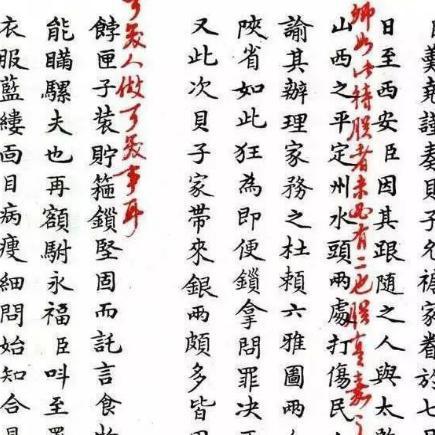 羹堯謹奏貝子允禟家眷於七
日至西安臣因其跟隨之人與太
卿如此待朕者未必有二也朕真嘉
山西之平定州水頭兩處打傷民
諭其辦理家務之杜賴六雅圖兩
陝省如此狂為即便鎖拿問罪決
又此次貝子家帶來銀兩頗多皆
可笑人做可笑事耳
餑匣子裝貯箍鎖堅固而託言食
能瞞騾夫也再額駙永福臣叫至
衣服藍縷面目病瘦細問始知合